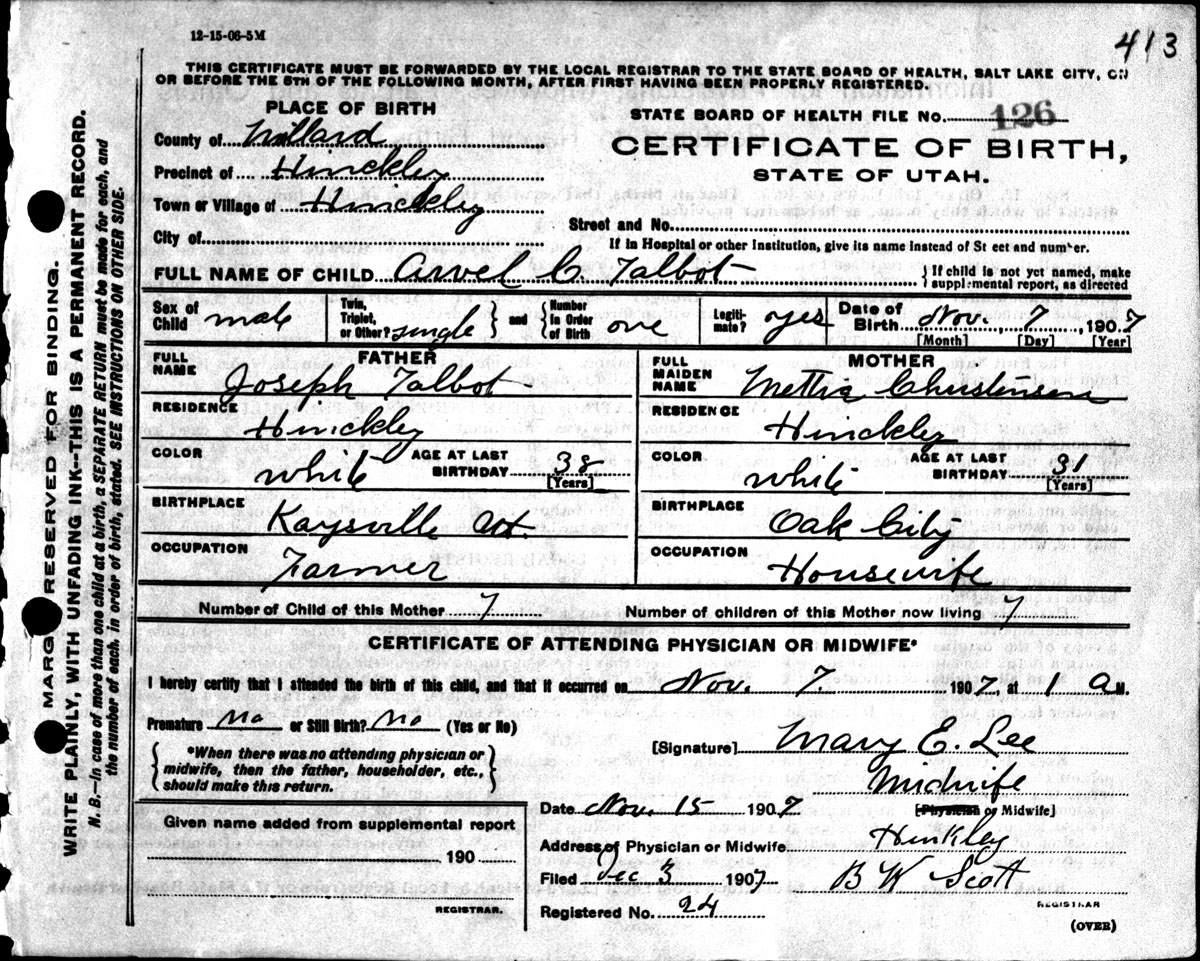 12-15-06-5M
413
THIS CERTIFICATE MUST BE FORWARDED BY THE LOCAL REGISTRAR TO THE STATE BOARD OF HEALTH, SALT LAKE CITY, ON
OR BEFORE THE 5TH OF THE FOLLOWING MONTH, AFTER FIRST HAVING BEEN PROPERLY REGISTERED.
PLACE OF BIRTH
County of Millard
Precinct of Hinckley
Town or Village of Hinckley
City of
STATE BOARD OF HEALTH FILE No. 126
CERTIFICATE OF BIRTH,
STATE OF UTAH.
Street and No.
If in Hospital or other Institution, give its name instead of St eet and number.
FULL NAME OF CHILD Arvel C. Talbot
If child is not yet named, make
supplemental report, as directed
Sex of Child male
Twin, Triplet, or Other? single
and Number in Order of Birth one
Legitimate? yes
Date of Birth Nov. 7, 1907
[Month] [Day] [Year]
FATHER
FULL NAME Joseph Talbot
RESIDENCE Hinckley
COLOR white AGE AT LAST BIRTHDAY 38
[Years]
BIRTHPLACE Kaysville Ut.
OCCUPATION Farmer
MOTHER
FULL MAIDEN NAME Mettra Christensen
RESIDENCE Hinckley
COLOR white AGE AT LAST BIRTHDAY 31
[Years]
BIRTHPLACE Oak City
OCCUPATION Housewife
Number of Child of this Mother 7
Number of children of this Mother now living 7
CERTIFICATE OF ATTENDING PHYSICIAN OR MIDWIFE*
I hereby certify that I attended the birth of this child, and that it occurred on Nov. 7. 1907, at 1 a M.
Premature No or Still Birth? No (Yes or No)
*When there was no attending physician or
midwife, then the father, householder, etc.,
should make this return.
[Signature] Mary E. Lee
Midwife
[Physician or Midwife]
Date Nov. 15 1907
Address of Physician or Midwife Hinkley
Filed Dec 3 1907 B W Scott
REGISTRAR
Registered No. 24
(OVER)
Given name added from supplemental report
190
REGISTRAR.
MARG RESERVED FOR BINDING.
WRITE PLAINLY, WITH UNFADING INK--THIS IS A PERMANENT RECORD.
N. B.—In case of more than one child at a birth, a SEPARATE RETURN must be made for each, and
the number of each, in order of birth, stated. SEE INSTRUCTIONS ON OTHER SIDE.